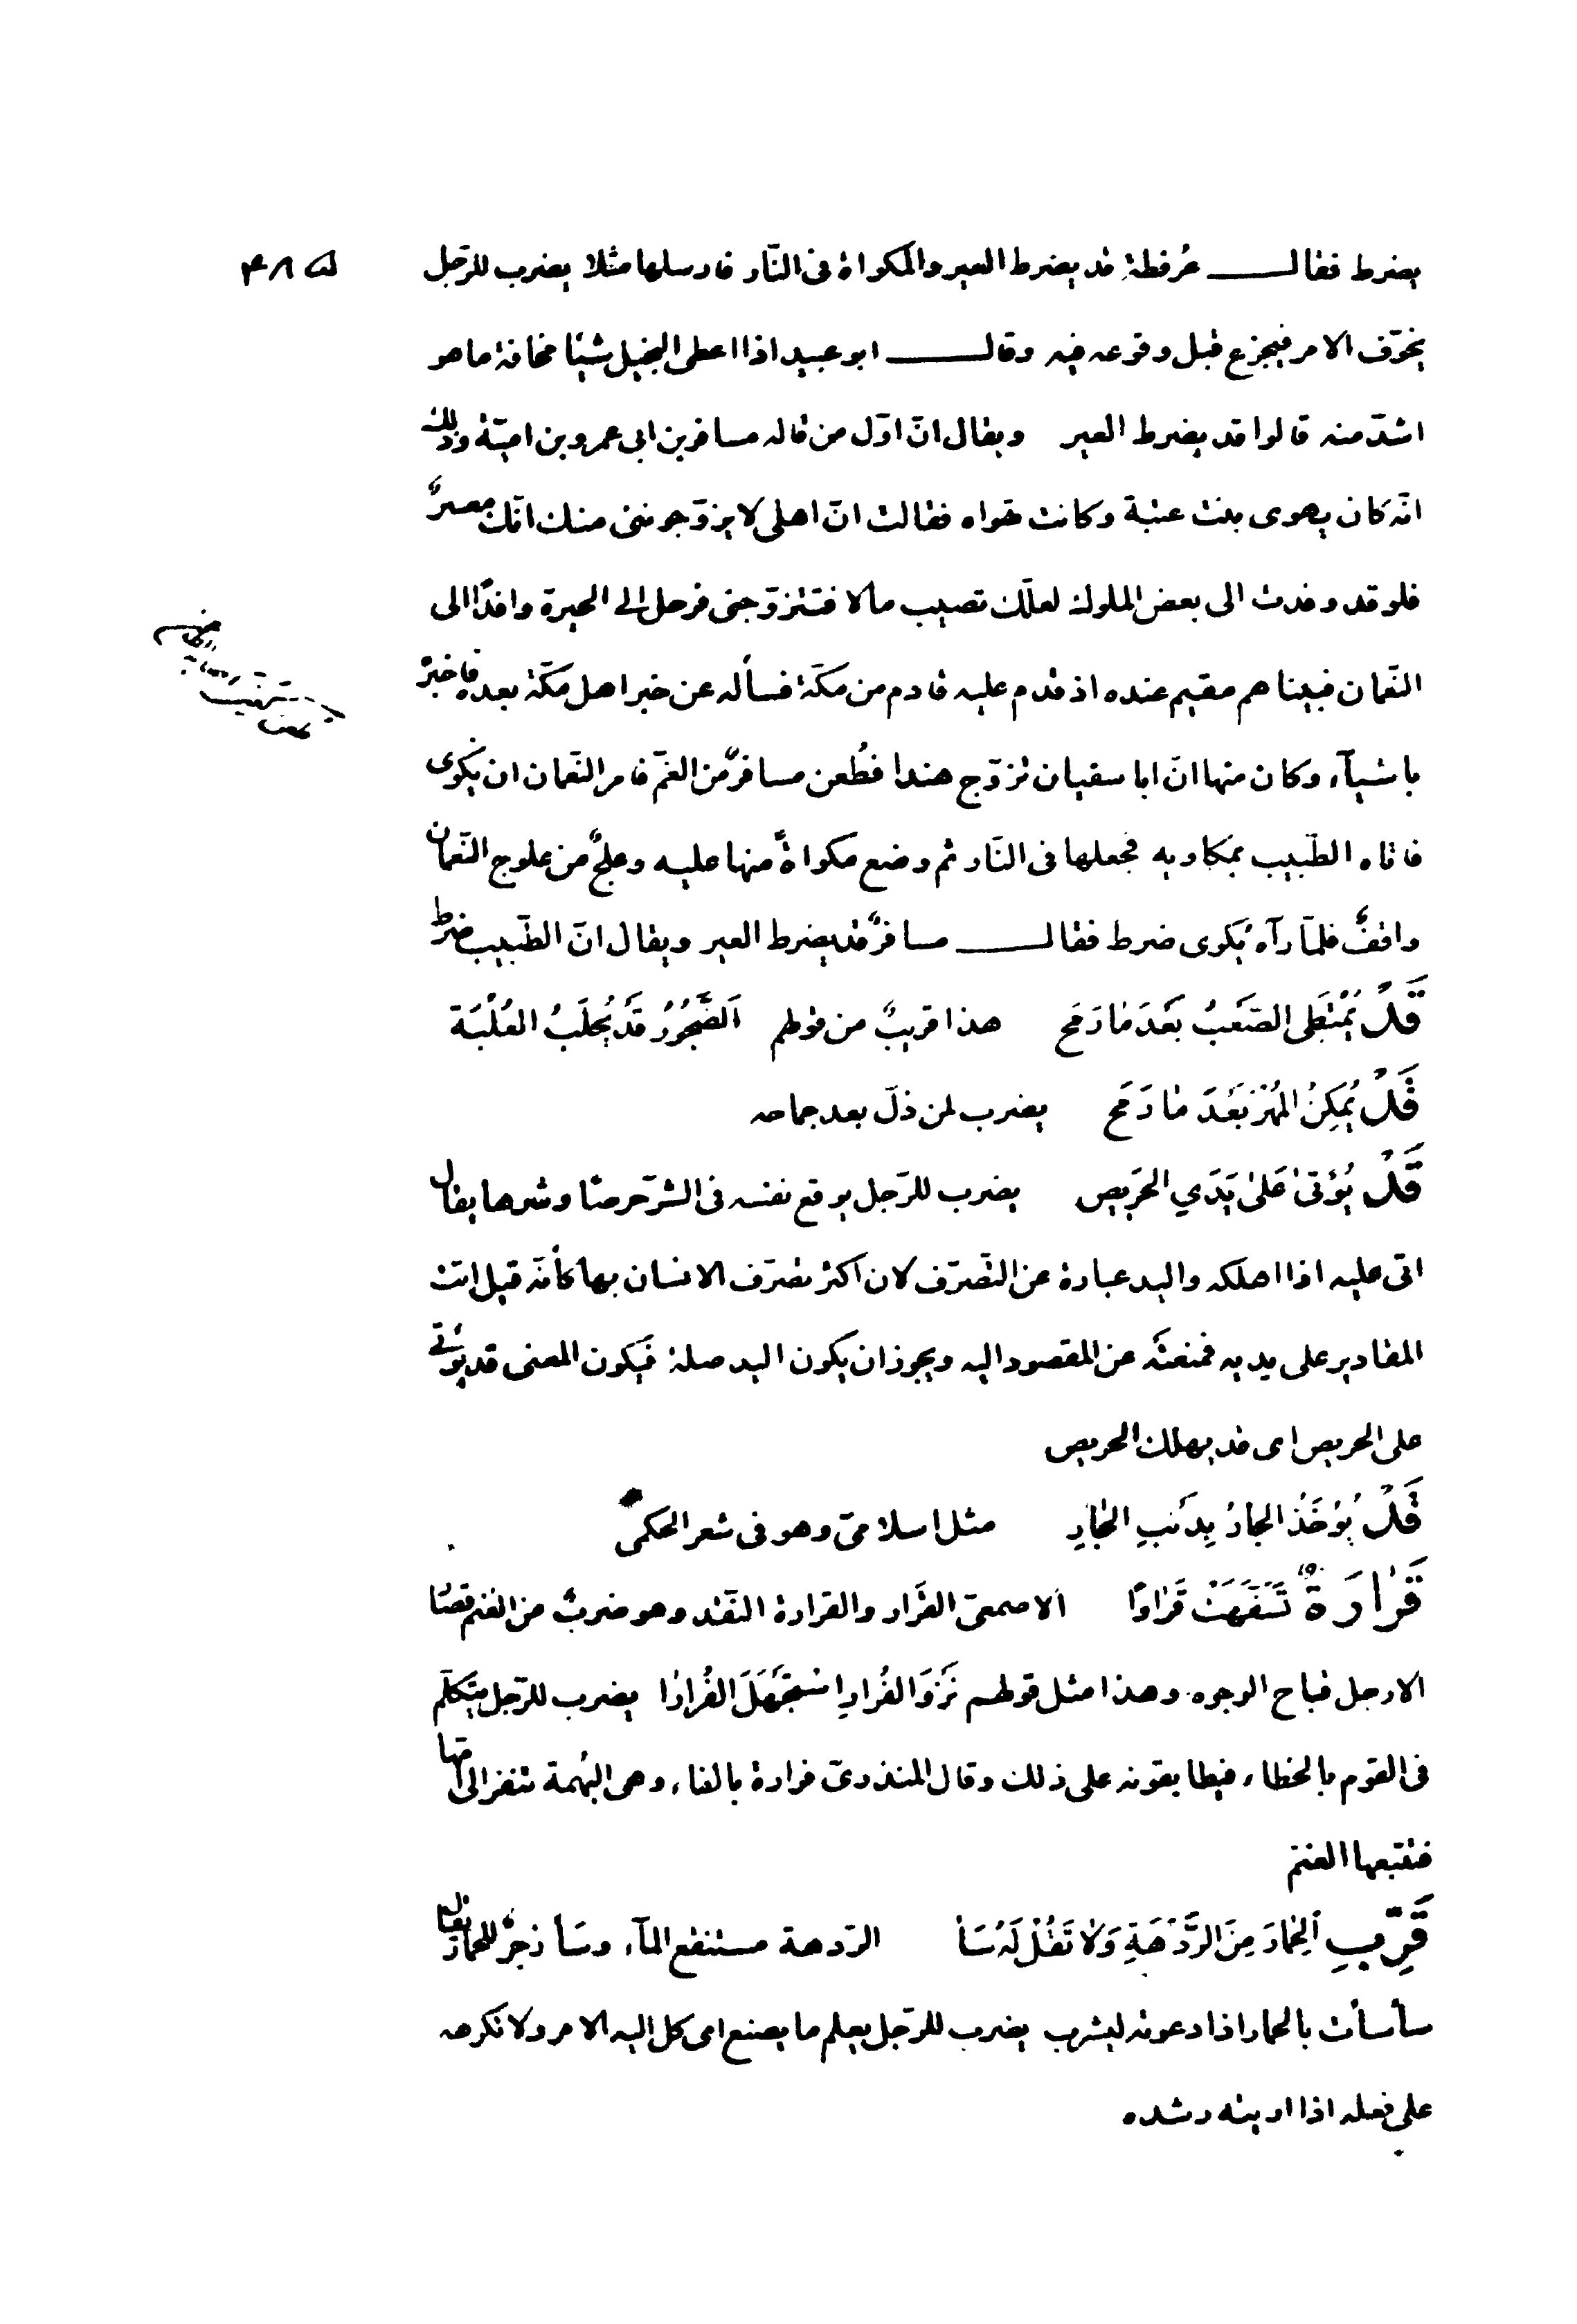 ۴۸۵
يضرط فقال عُرفطة قد يضرط العير والمكواة فى النّار فارسلها مثلا يضرب للرّجل
يخوّف الامر فيجزع قبل وقوعه فيه وقال ابو عبيد اذا اعطى البخيل شيئا مخافة ما هو
اشدّ منه قالوا قد يضرط العير ويقال انّ اوّل من قاله مسافر بن ابى عمرو بن اميّة وذلك
انّه كان يهوى بنت عتبة وكانت تهواه فقالت انّ اهلى لا يزوّجوننى منك انّك معسرٌ
فلو قد وفدت الى بعض الملوك لعلّك تصيب مالا فتتزوّجنى فرحل الى الحيرة وافدًا الى
النّعمان فبيناهم مقيم عنده اذ قدم عليه قادم من مكّة فسأله عن خبر اهل مكّة بعده فاخبرَ
باشيآء وكان منها انّ ابا سفيان تزوّج هندا فطُعن مسافرٌ من الغمّ فامر النّعمان ان يكوى
فاتاه الطّبيب بمكاويه فجعلها فى النّار ثم وضع مكواةً منها عليه وعلجٌ من علوج النّعمان
واقفٌ فلمّا رآه يُكوى ضرط فقال مسافرٌ قد يضرط العير ويقال انّ الطّبيب ضرط
قَدْ يُمْتَطَى الصَّعبُ بَعْدَ مٰا رَمَحَ هذا قريبٌ من قولهم اَلضَّجُورُ قَدْ يُحلَبُ العُلْبَة
قَدْ يُمكِنُ المُهْرُ بَعْدَ مٰا رَمَحَ يضرب لمن ذلّ بعد جماحه
قَدْ يُؤتىٰ عَلىٰ يَدَيِ الحَرِيصِ يضرب للرّجل يوقع نفسه فى الشّر حرصًا وشرها يقال
اتى عليه اذا اهلكه واليد عبارة عن التّصرّف لان اكثر تصرّف الانسان بها كأنّه قيل اتت
المقادير على يديه فمنعتْه عن المقصود اليه ويجوز ان يكون اليد صلة فيكون المعنى قد يؤتى
على الحريص اى قد يهلك الحريص
قَدْ يُؤخَذُ الجارُ بِذَنبِ الجٰارِ مثل اسلامىّ وهو فى شعر الحكمى
قَرٰارَةٌ تَسَفَّهَتْ قَرٰارًا الاصمعىّ القرار والقرارة النّقد وهو ضربٌ من الغنم قصٰا
الارجل قباح الوجوه وهذا مثل قولهم نَزْوَ الفُرارِ استَجْهَلَ الفُرارٰا يضرب للرّجل يتكلّم
فى القوم بالخطاء فيطابقونه على ذلك وقال المنذرىّ فرارة بالفاء وهى البهمة تنفر الى امّها
فتتبعها الغنم
قَرِّبِ اَلحِمٰارَ مِنَ الرَّدْهَةِ وَلاٰ تَقُلْ لَهُ سَأْ الرّدهة مستنقع المآء وسَأْ زجرٌ للحمار يقال
سأسأت بالحمار اذا دعوته ليشرب يضرب للرّجل يعلم ما يصنع اى كل اليه الامر ولا تكرهه
على فعله اذا اريته رشده